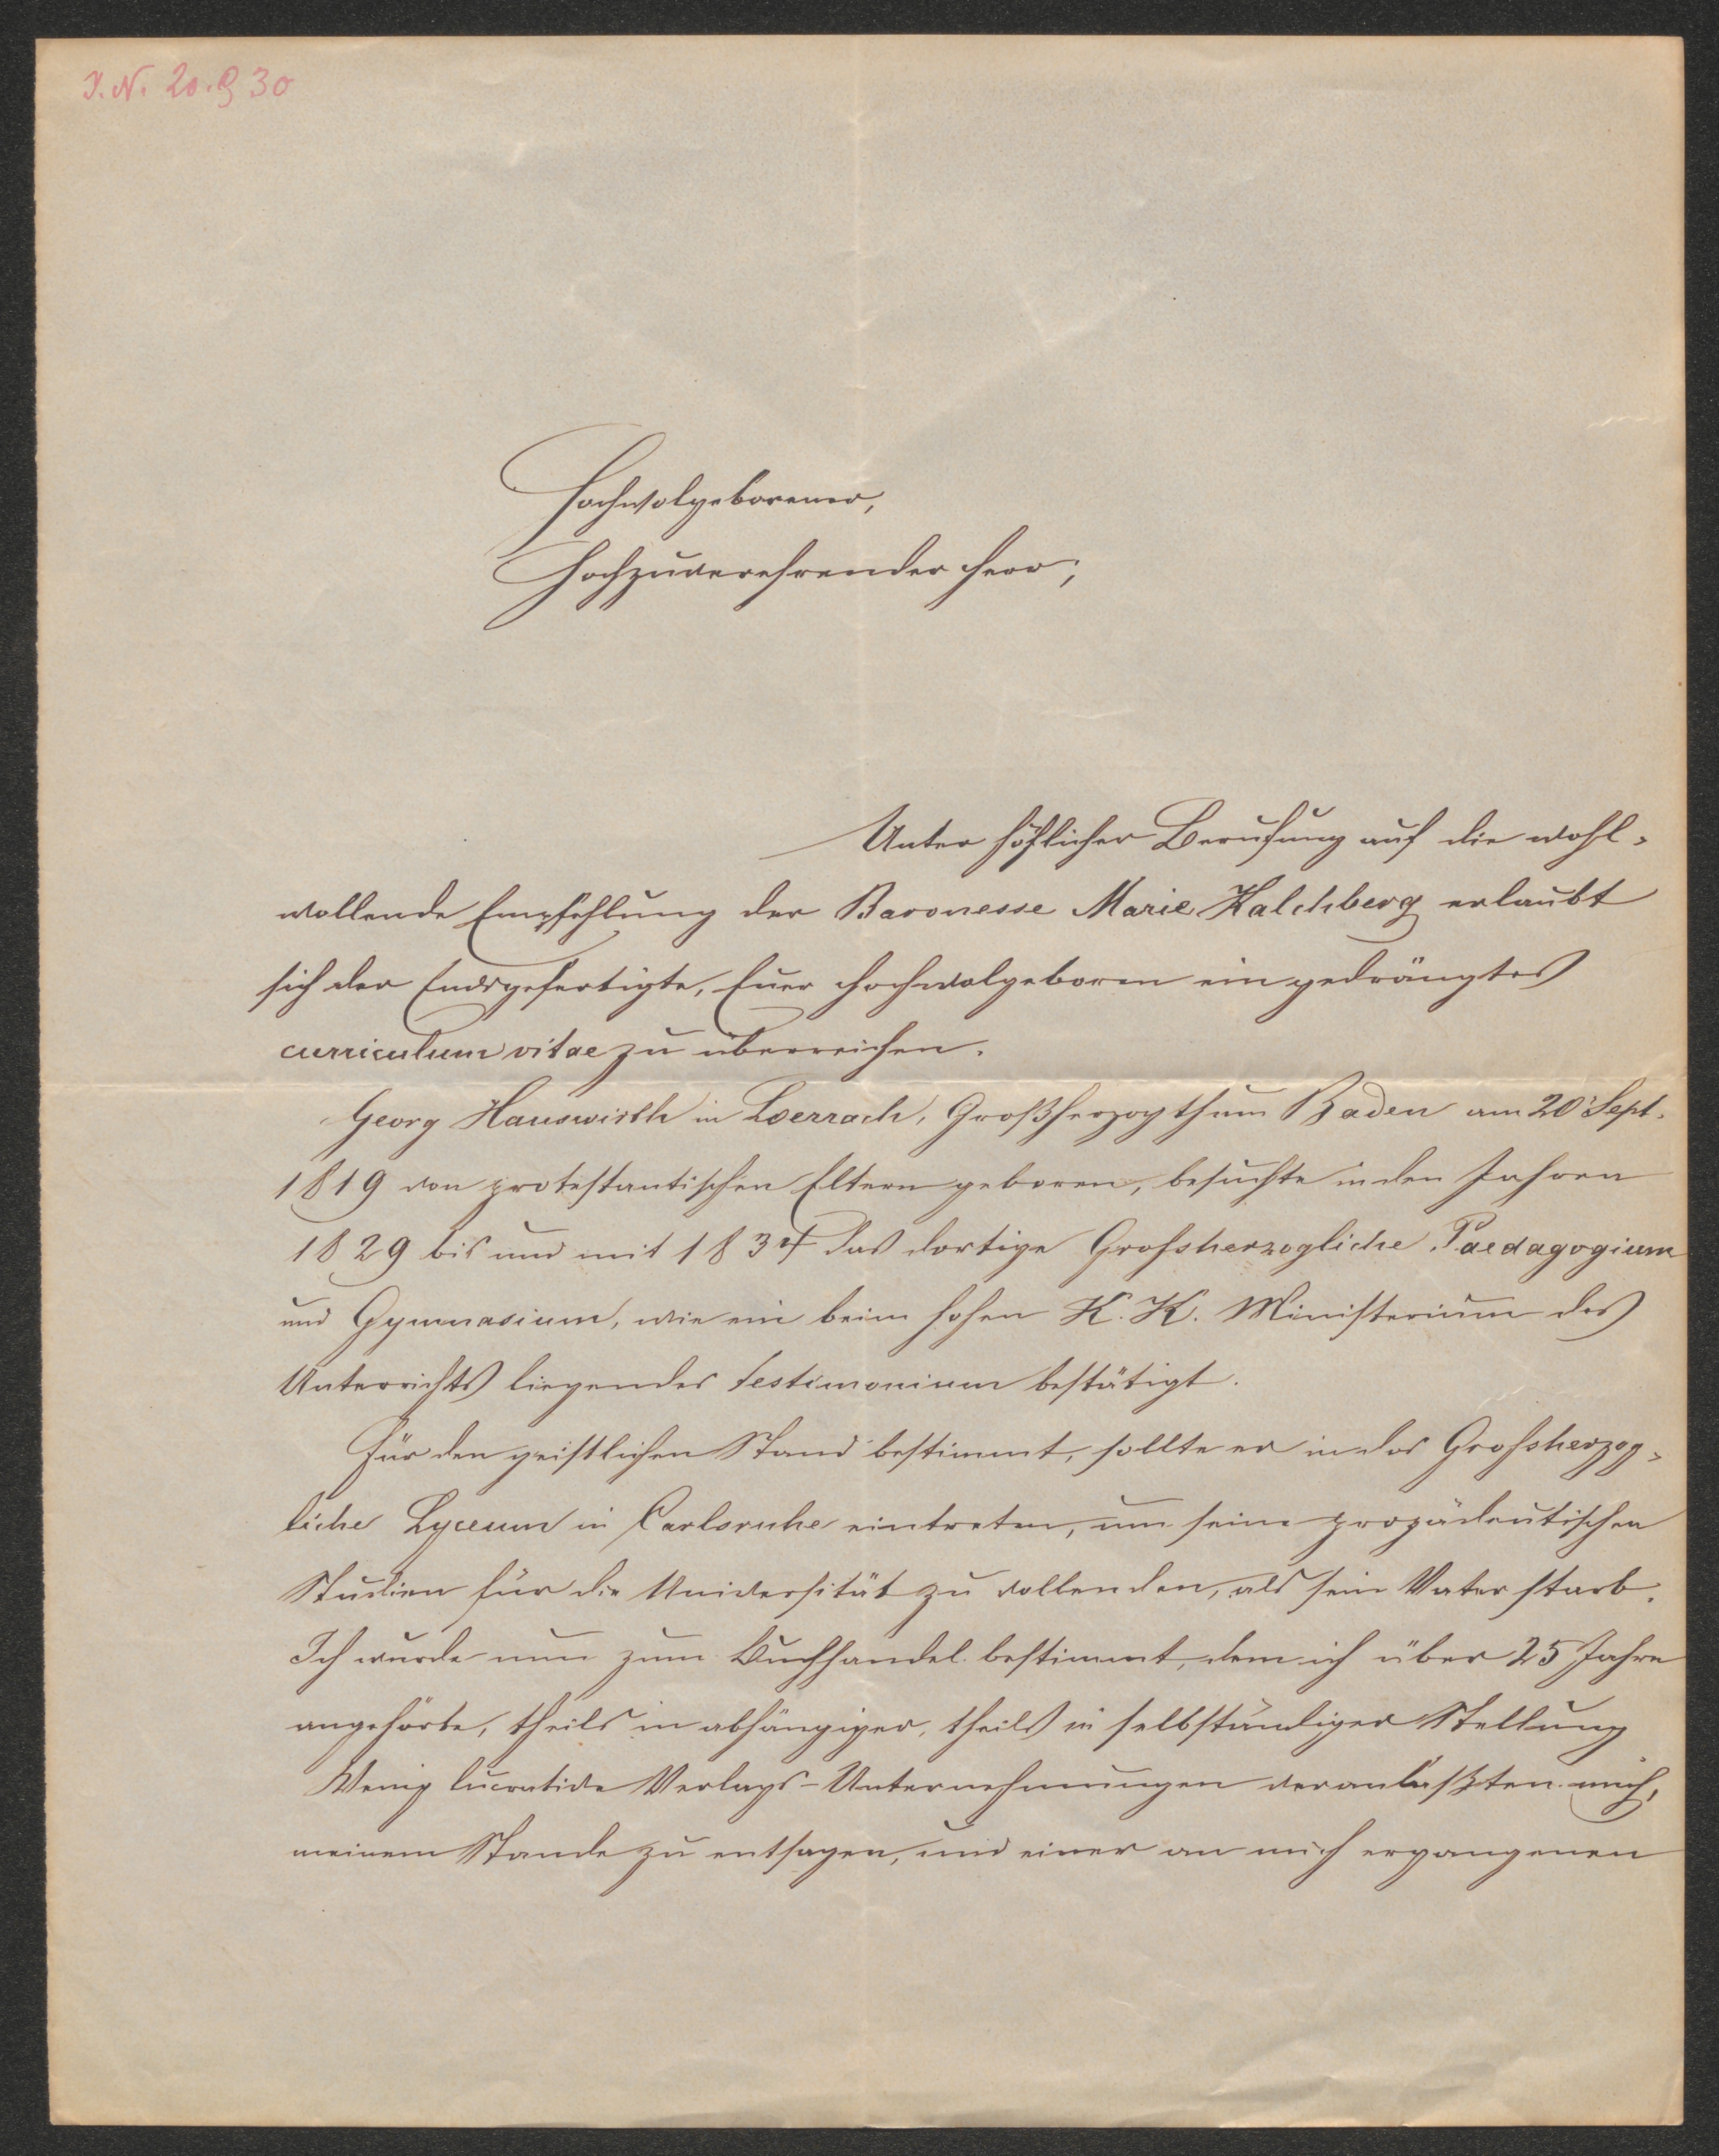 I.N. 20.930
Hochwolgeborener,
Hochzuverehrender Herr;
Unter höflicher Berufung auf die wohl-
wollende Empfehlung der Baronesse Marie Kalchberg erlaubt
sich der Endsgefertigte, Euer Hochwolgeboren ein gedrängtes
curriculum vitae zu überreichen.
Georg Hauswirth in Loerrach, Großherzogthum Baden am 20' Sept.
1819 von protestantischen Eltern geboren, besuchte in den Jahren
1829 bis und mit 1834 das dortige Grofsherzogliche Paedagogium
und Gymnasium, wie ein beim hohen K. K. Ministerium des
Unterrichts liegendes testimonium bestätigt.
Für den geistlichen Stand bestimmt, sollte er in das Grofsherzog-
liche Lyceum in Carlsruhe eintreten, um seine propädeutischen
Studien für die Universität zu vollenden, als sein Vater starb.
Ich wurde nun zum Buchhandel bestimmt, dem ich über 25 Jahre
angehörte, theils in abhängiger, theils in selbständiger Stellung
Wenig lucrative Verlags-Unternehmungen veranlaßten mich,
meinem Stande zu entsagen, und einer an mich ergangenen